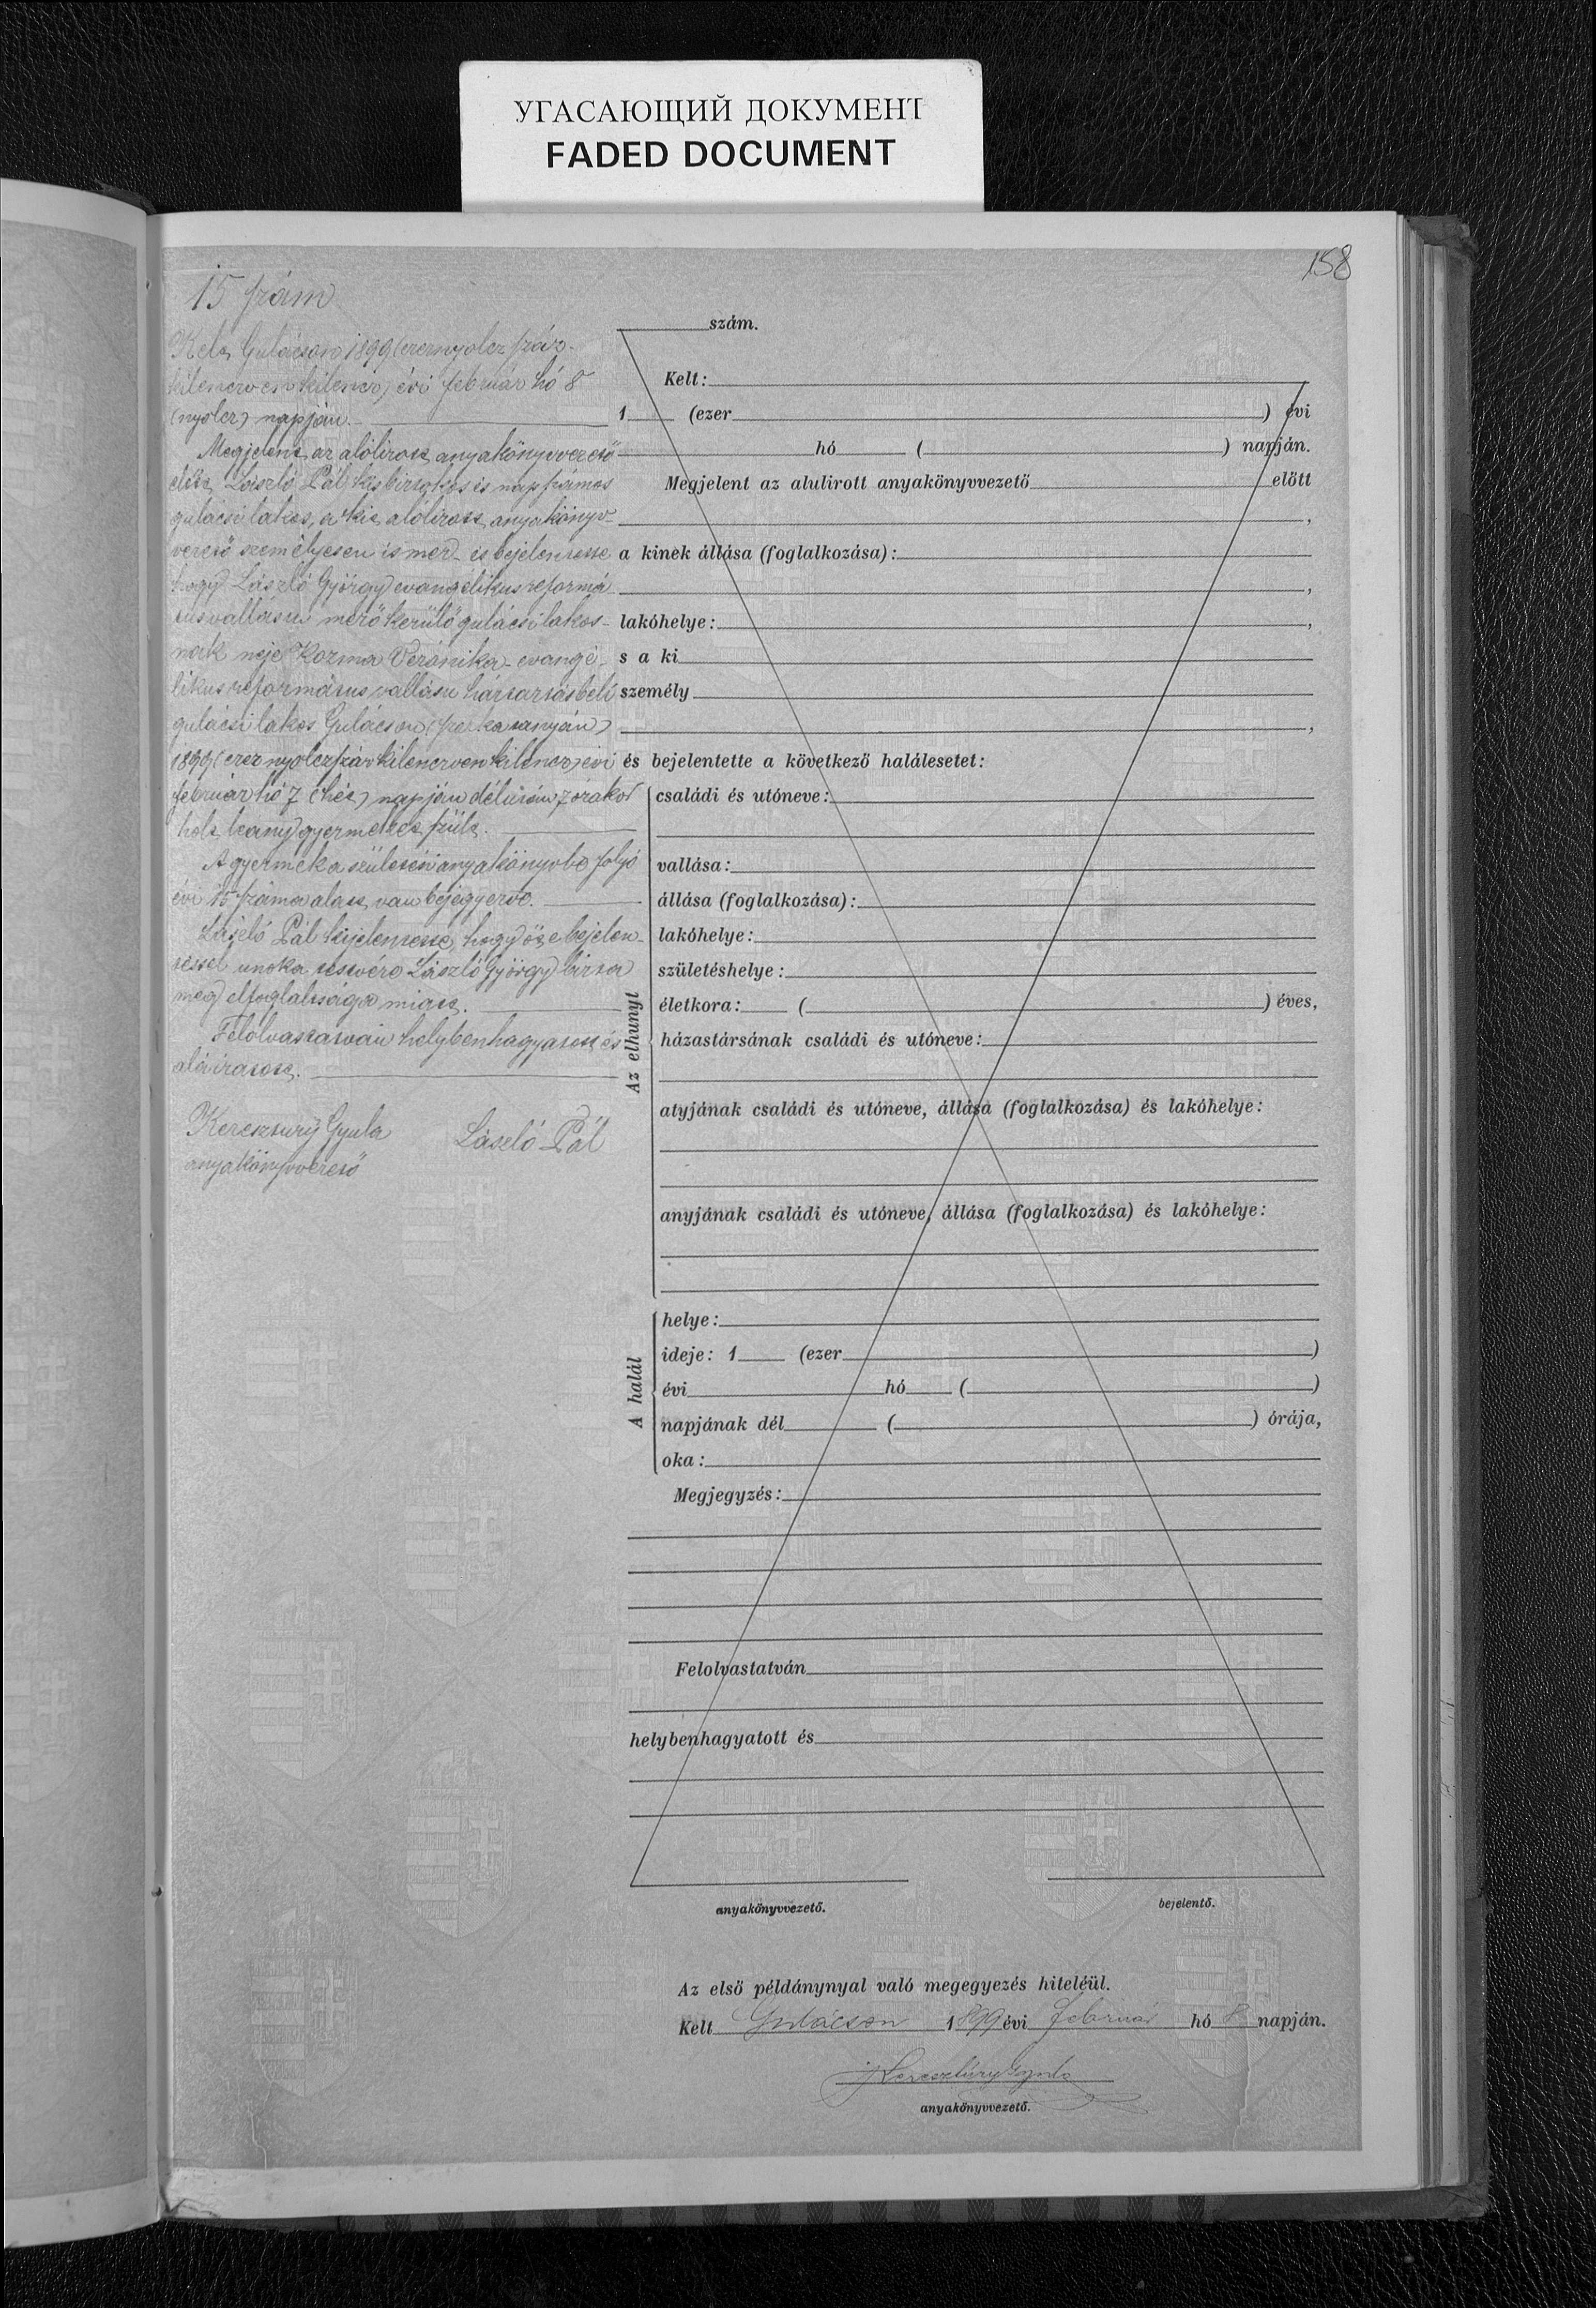 УГАСАЮЩИЙ ДОКУМЕНТ
FADED DOCUMENT
158
15 szám
Kelt, Gulácson 1899 (ezernyolcz száz-
kilenczvenkilencz) évi február hó 8
(nyolcz) napján.
Megjelent az alólirott anyakönyvvezető
előtt László Pál kisbirtokos és napszámos
gulácsi lakos, a kit alólirott anyakönyv-
vezető személyesen ismer és bejelentette
hogy László György evangélikus reformá-
tus vallásu mezőkerülő gulácsi lakos-
nak neje Kozma Veronika evangé-
likus református vallásu háztartásbeli
gulácsi lakos Gulácson
1899 (ezernyolczszázkilenczvenkilencz) évi
február hó 7 (hét) napján délután 7 órakor
holt leány gyermeket szült.
A gyermek a születési anyakönyvbe folyó
évi 15 száma alatt van bejegyezve.
László Pál kijelentette, hogy őt e bejelen-
téssel unoka testvére László György bizta
meg elfoglaltsága miatt.
Felolvastatván helybenhagyatott és
aláiratott.
Keresztury Gyula László Pál
anyakönyvvezető
szám.
Kelt:
1 (ezer ) évi
hó ( ) napján.
Megjelent az alulirott anyakönyvvezető előtt
,
a kinek állása (foglalkozása):
,
lakóhelye: ,
s a ki
személy
,
és bejelentette a következő halálesetet:
Az elhunyt
családi és utóneve:
vallása:
állása (foglalkozása):
lakóhelye:
születéshelye:
életkora: ( ) éves,
házastársának családi és utóneve:
atyjának családi és utóneve, állása (foglalkozása) és lakóhelye:
anyjának családi és utóneve, állása (foglalkozása) és lakóhelye:
A halál
helye:
ideje: 1 (ezer )
évi hó ( )
napjának dél ( ) órája,
oka:
Megjegyzés:
Felolvastatván
helybenhagyatott és
anyakönyvvezető. bejelentő.
Az első példánynyal való megegyezés hiteléül.
Kelt Gulácson 1899 évi február hó 8 napján.
Keresztúry Gyula
anyakönyvvezető.